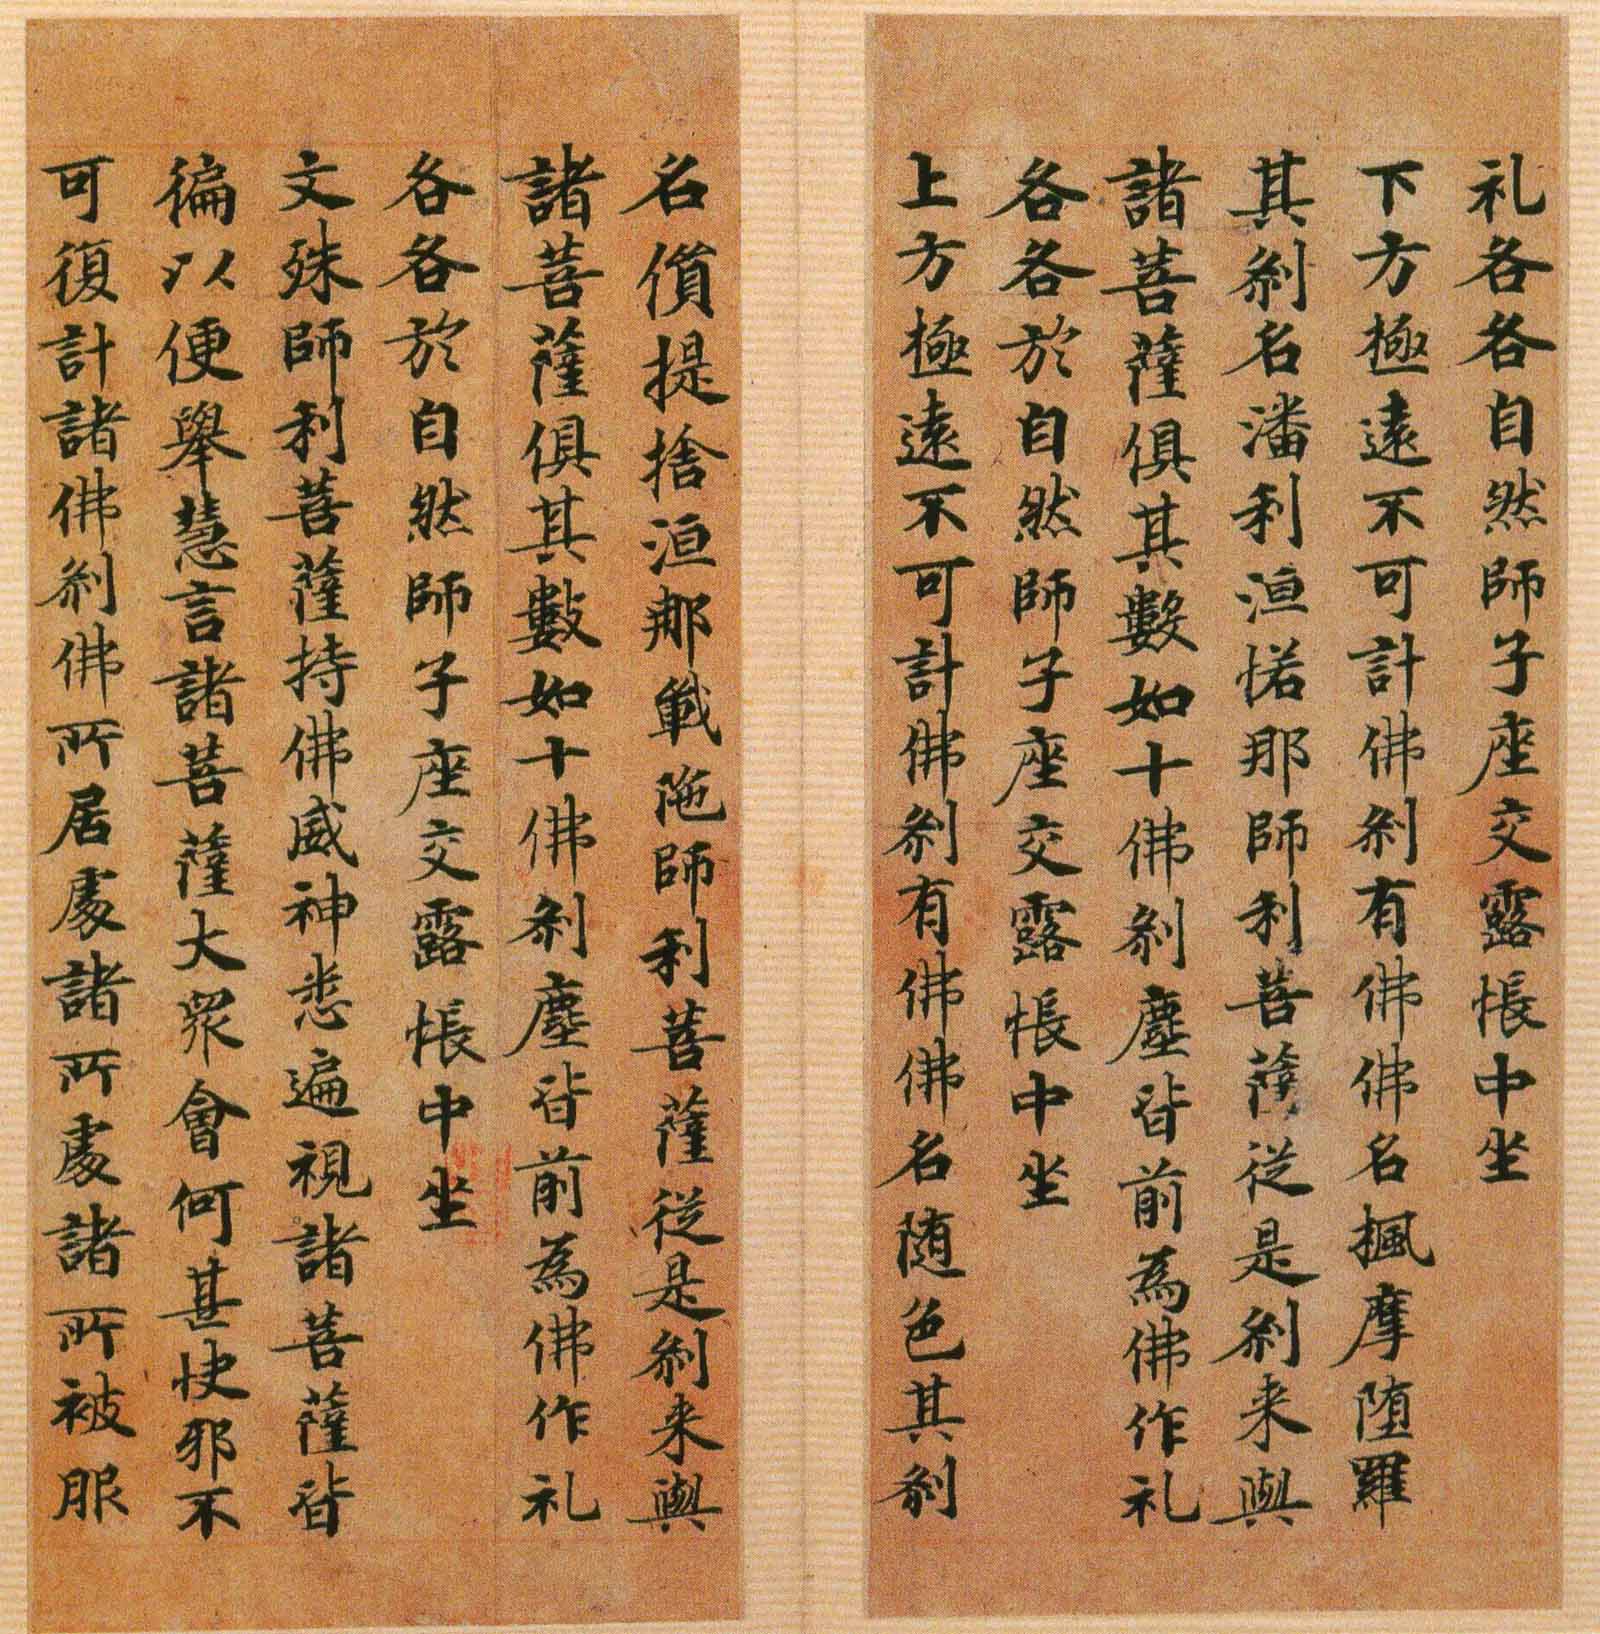 礼各各自然師子座交露帳中坐
下方極遠不可計佛刹有佛佛名楓摩堕羅
其刹名潘利洹愘那師利菩薩從是刹来與
諸菩薩俱其數如十佛刹塵皆前為佛作礼
各各於自然師子座交露帳中坐
上方極遠不可計佛刹有佛佛名随色其刹
名儥提捨洹那戰陁師利菩薩從是刹来與
諸菩薩俱其數如十佛刹塵皆前為佛作礼
各各於自然師子座交露帳中坐
文殊師利菩薩持佛威神悉遍視諸菩薩皆
徧以便舉慧言諸菩薩大眾會何甚快邪不
可復計諸佛刹佛所居處諸所處諸所被服